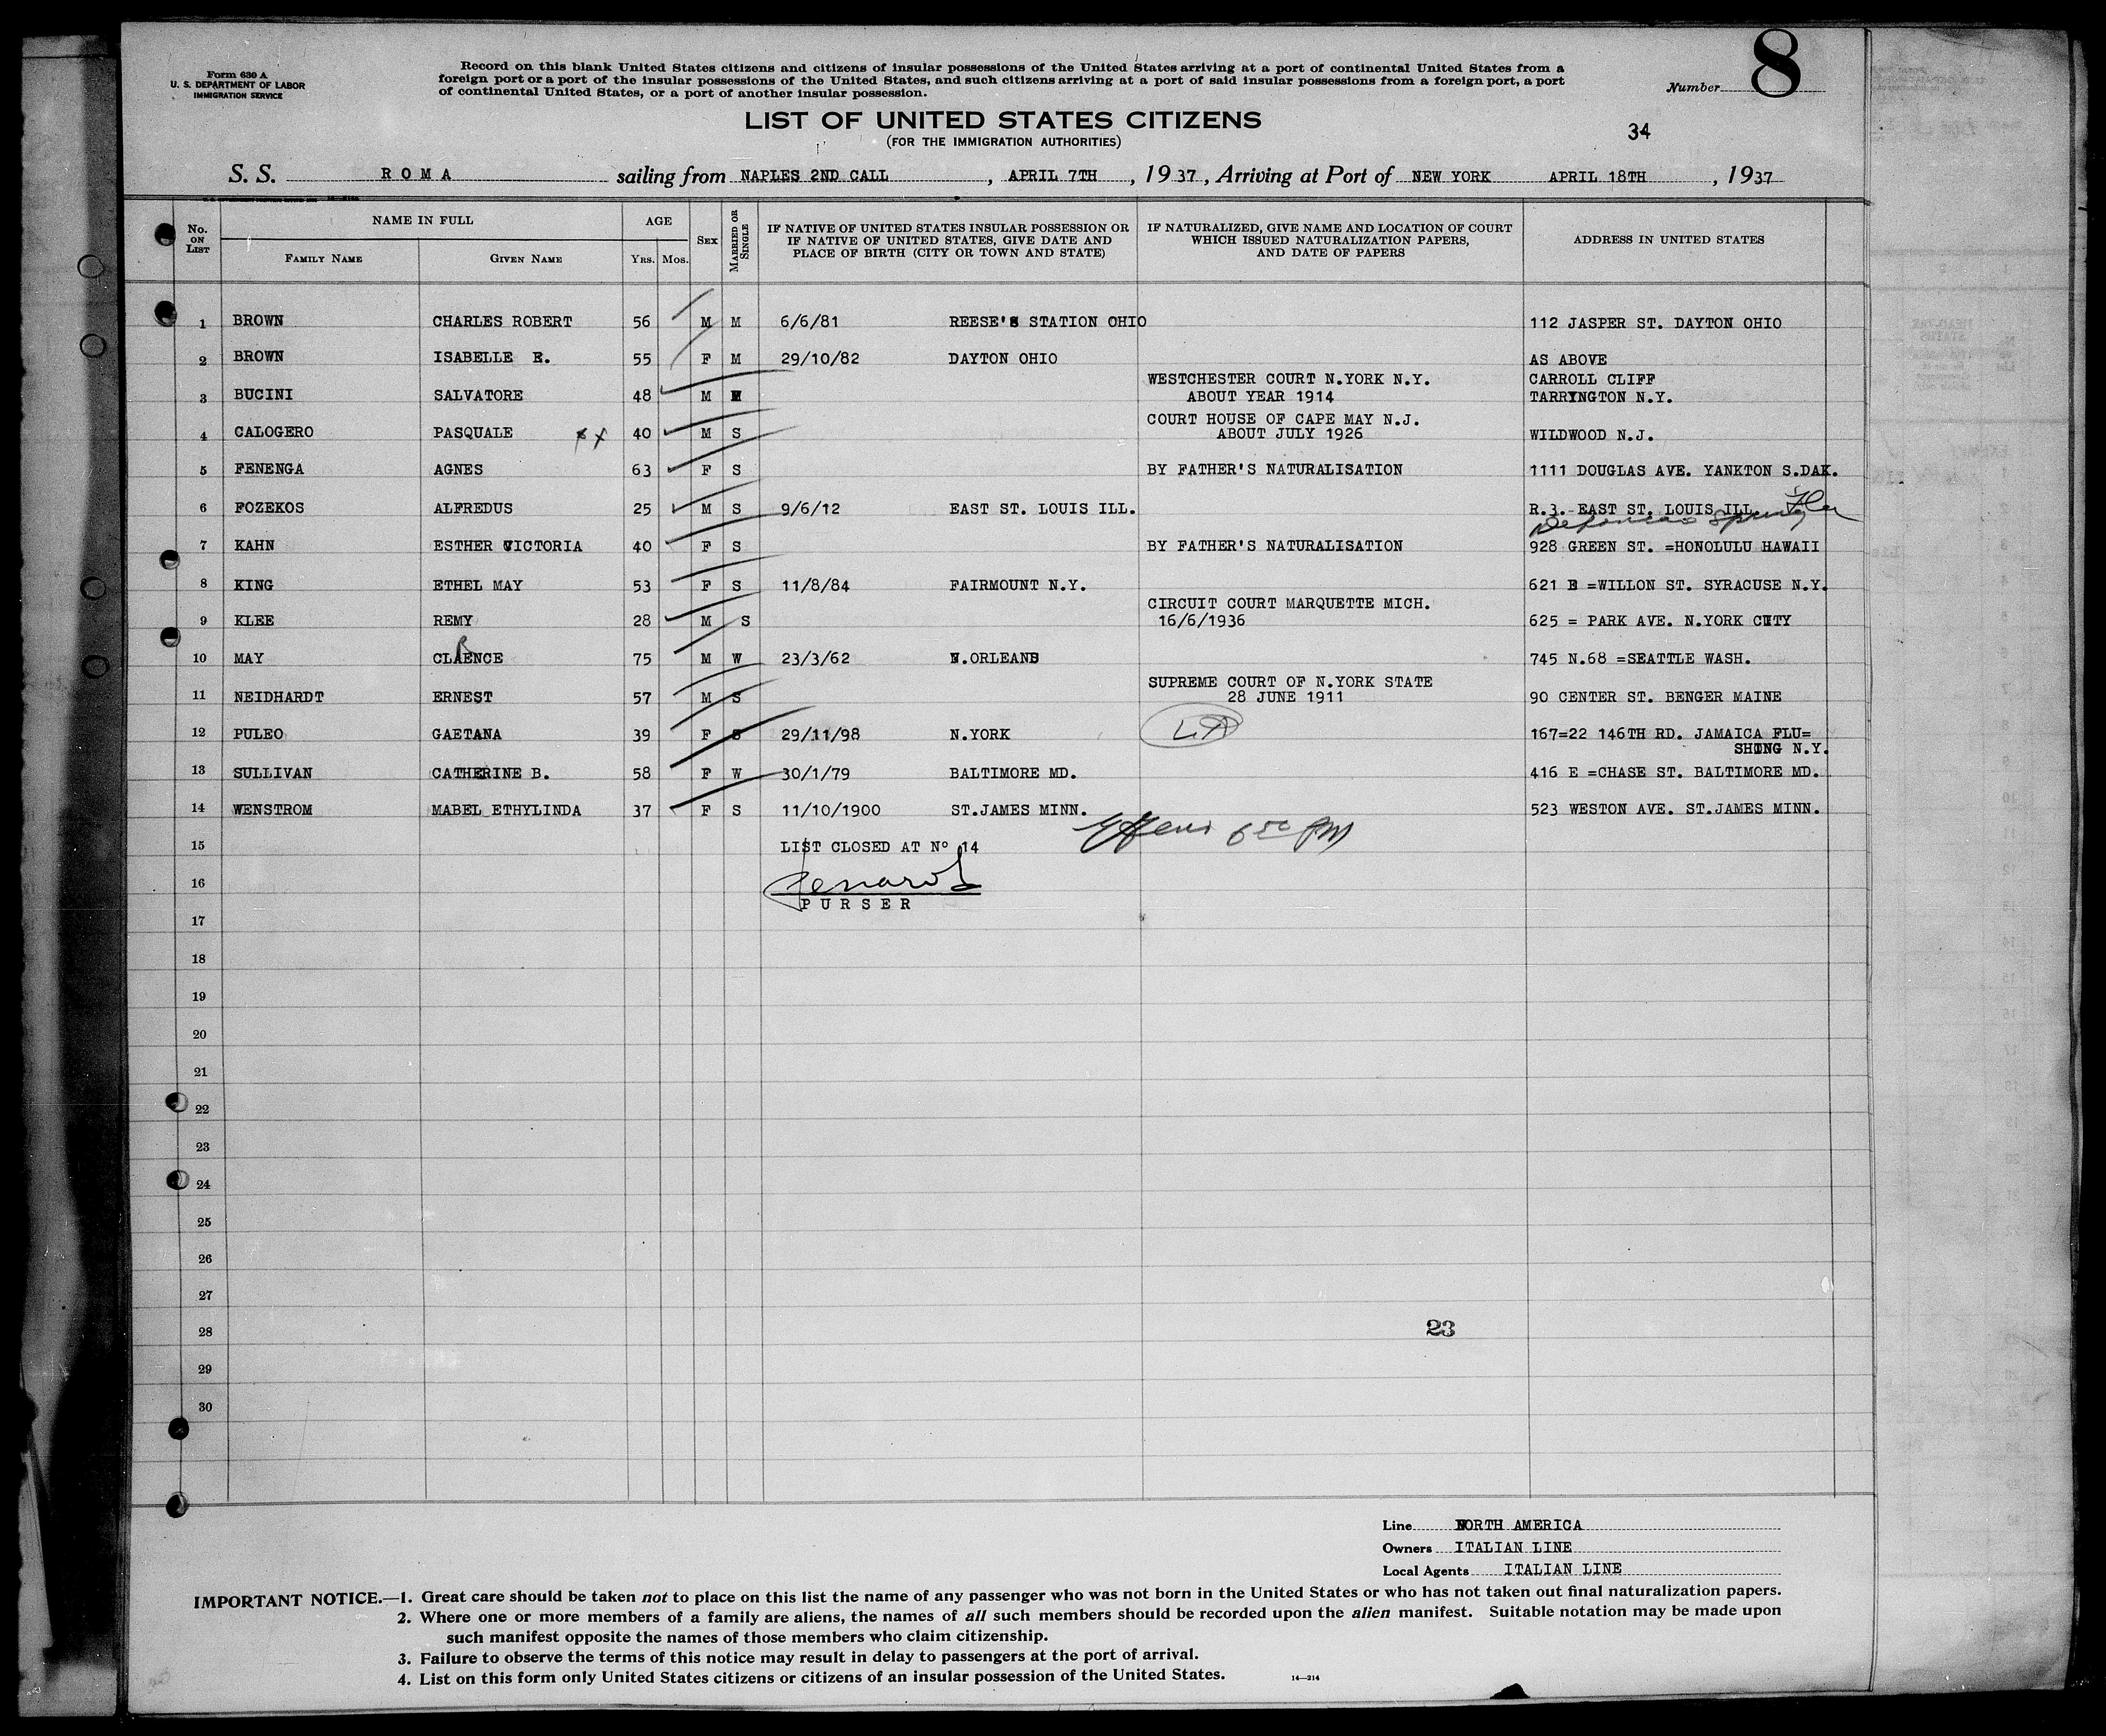 Form 630 A
U. S. DEPARTMENT OF LABOR
IMMIGRATION SERVICE
Record on this blank United States citizens and citizens of insular possessions of the United States arriving at a port of continental United States from a
foreign port or a port of the insular possessions of the United States, and such citizens arriving at a port of said insular possessions from a foreign port, a port
of continental United States, or a port of another insular possession.
Number 8
LIST OF UNITED STATES CITIZENS
(FOR THE IMMIGRATION AUTHORITIES)
34
S. S. ROMA sailing from NAPLES 2ND CALL, APRIL 7TH, 1937, Arriving at Port of NEW YORK APRIL 18TH, 1937
No. ON LIST
NAME IN FULL
FAMILY NAME GIVEN NAME
AGE
YRS. MOS.
SEX
MARRIED OR SINGLE
IF NATIVE OF UNITED STATES INSULAR POSSESSION OR
IF NATIVE OF UNITED STATES, GIVE DATE AND
PLACE OF BIRTH (CITY OR TOWN AND STATE)
IF NATURALIZED, GIVE NAME AND LOCATION OF COURT
WHICH ISSUED NATURALIZATION PAPERS,
AND DATE OF PAPERS
ADDRESS IN UNITED STATES
1 BROWN CHARLES ROBERT 56 M M 6/6/81 REESE'S STATION OHIO 112 JASPER ST. DAYTON OHIO
2 BROWN ISABELLE E. 55 F M 29/10/82 DAYTON OHIO AS ABOVE
WESTCHESTER COURT N.YORK N.Y. CARROLL CLIFF
3 BUCINI SALVATORE 48 M ABOUT YEAR 1914 TARRYNGTON N.Y.
COURT HOUSE OF CAPE MAY N.J.
4 CALOGERO PASQUALE 40 M S ABOUT JULY 1926 WILDWOOD N.J.
5 FENENGA AGNES 63 F S BY FATHER'S NATURALISATION 1111 DOUGLAS AVE. YANKTON S.DAK.
6 FOZEKOS ALFREDUS 25 M S 9/6/12 EAST ST. LOUIS ILL. R.3. EAST ST. LOUIS ILL
7 KAHN ESTHER VICTORIA 40 F S BY FATHER'S NATURALISATION 928 GREEN ST. =HONOLULU HAWAII
8 KING ETHEL MAY 53 F S 11/8/84 FAIRMOUNT N.Y. 621 E =WILLON ST. SYRACUSE N.Y.
CIRCUIT COURT MARQUETTE MICH.
9 KLEE REMY 28 M S 16/6/1936 625 = PARK AVE. N.YORK CITY
R
10 MAY CLAENCE 75 M W 23/3/62 N.ORLEANS 745 N.68 =SEATTLE WASH.
SUPREME COURT OF N.YORK STATE
11 NEIDHARDT ERNEST 57 M S 28 JUNE 1911 90 CENTER ST. BENGER MAINE
12 PULEO GAETANA 39 F S 29/11/98 N.YORK 167=22 146TH RD. JAMAICA FLU=
SHING N.Y.
13 SULLIVAN CATHERINE B. 58 F W 30/1/79 BALTIMORE MD. 416 E =CHASE ST. BALTIMORE MD.
14 WENSTROM MABEL ETHYLINDA 37 F S 11/10/1900 ST.JAMES MINN. 523 WESTON AVE. ST.JAMES MINN.
15 LIST CLOSED AT Nº 14
16
PURSER
17
18
19
20
21
22
23
24
25
26
27
28 23
29
30
Line NORTH AMERICA
Owners ITALIAN LINE
Local Agents ITALIAN LINE
IMPORTANT NOTICE.—1. Great care should be taken not to place on this list the name of any passenger who was not born in the United States or who has not taken out final naturalization papers.
2. Where one or more members of a family are aliens, the names of all such members should be recorded upon the alien manifest. Suitable notation may be made upon
such manifest opposite the names of those members who claim citizenship.
3. Failure to observe the terms of this notice may result in delay to passengers at the port of arrival.
4. List on this form only United States citizens or citizens of an insular possession of the United States.
14—214